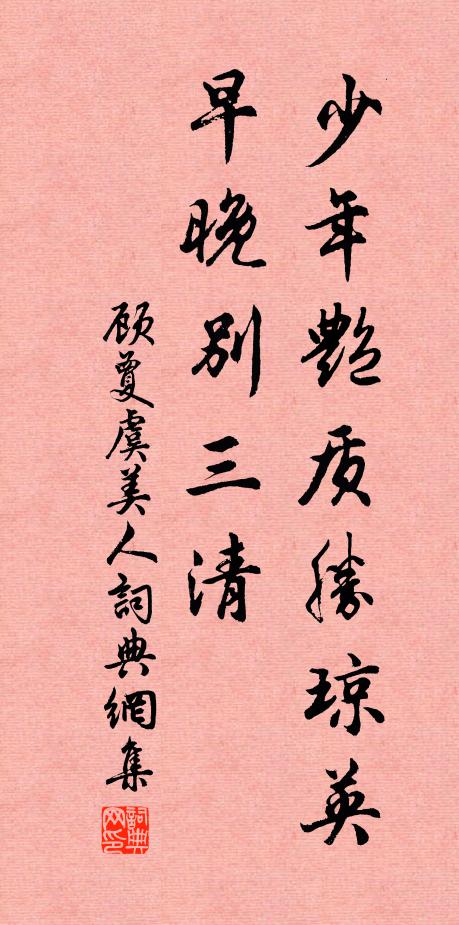 少年艷质勝琼英
早晚别三清
顾夐虞美人詞典網集
詞典网印